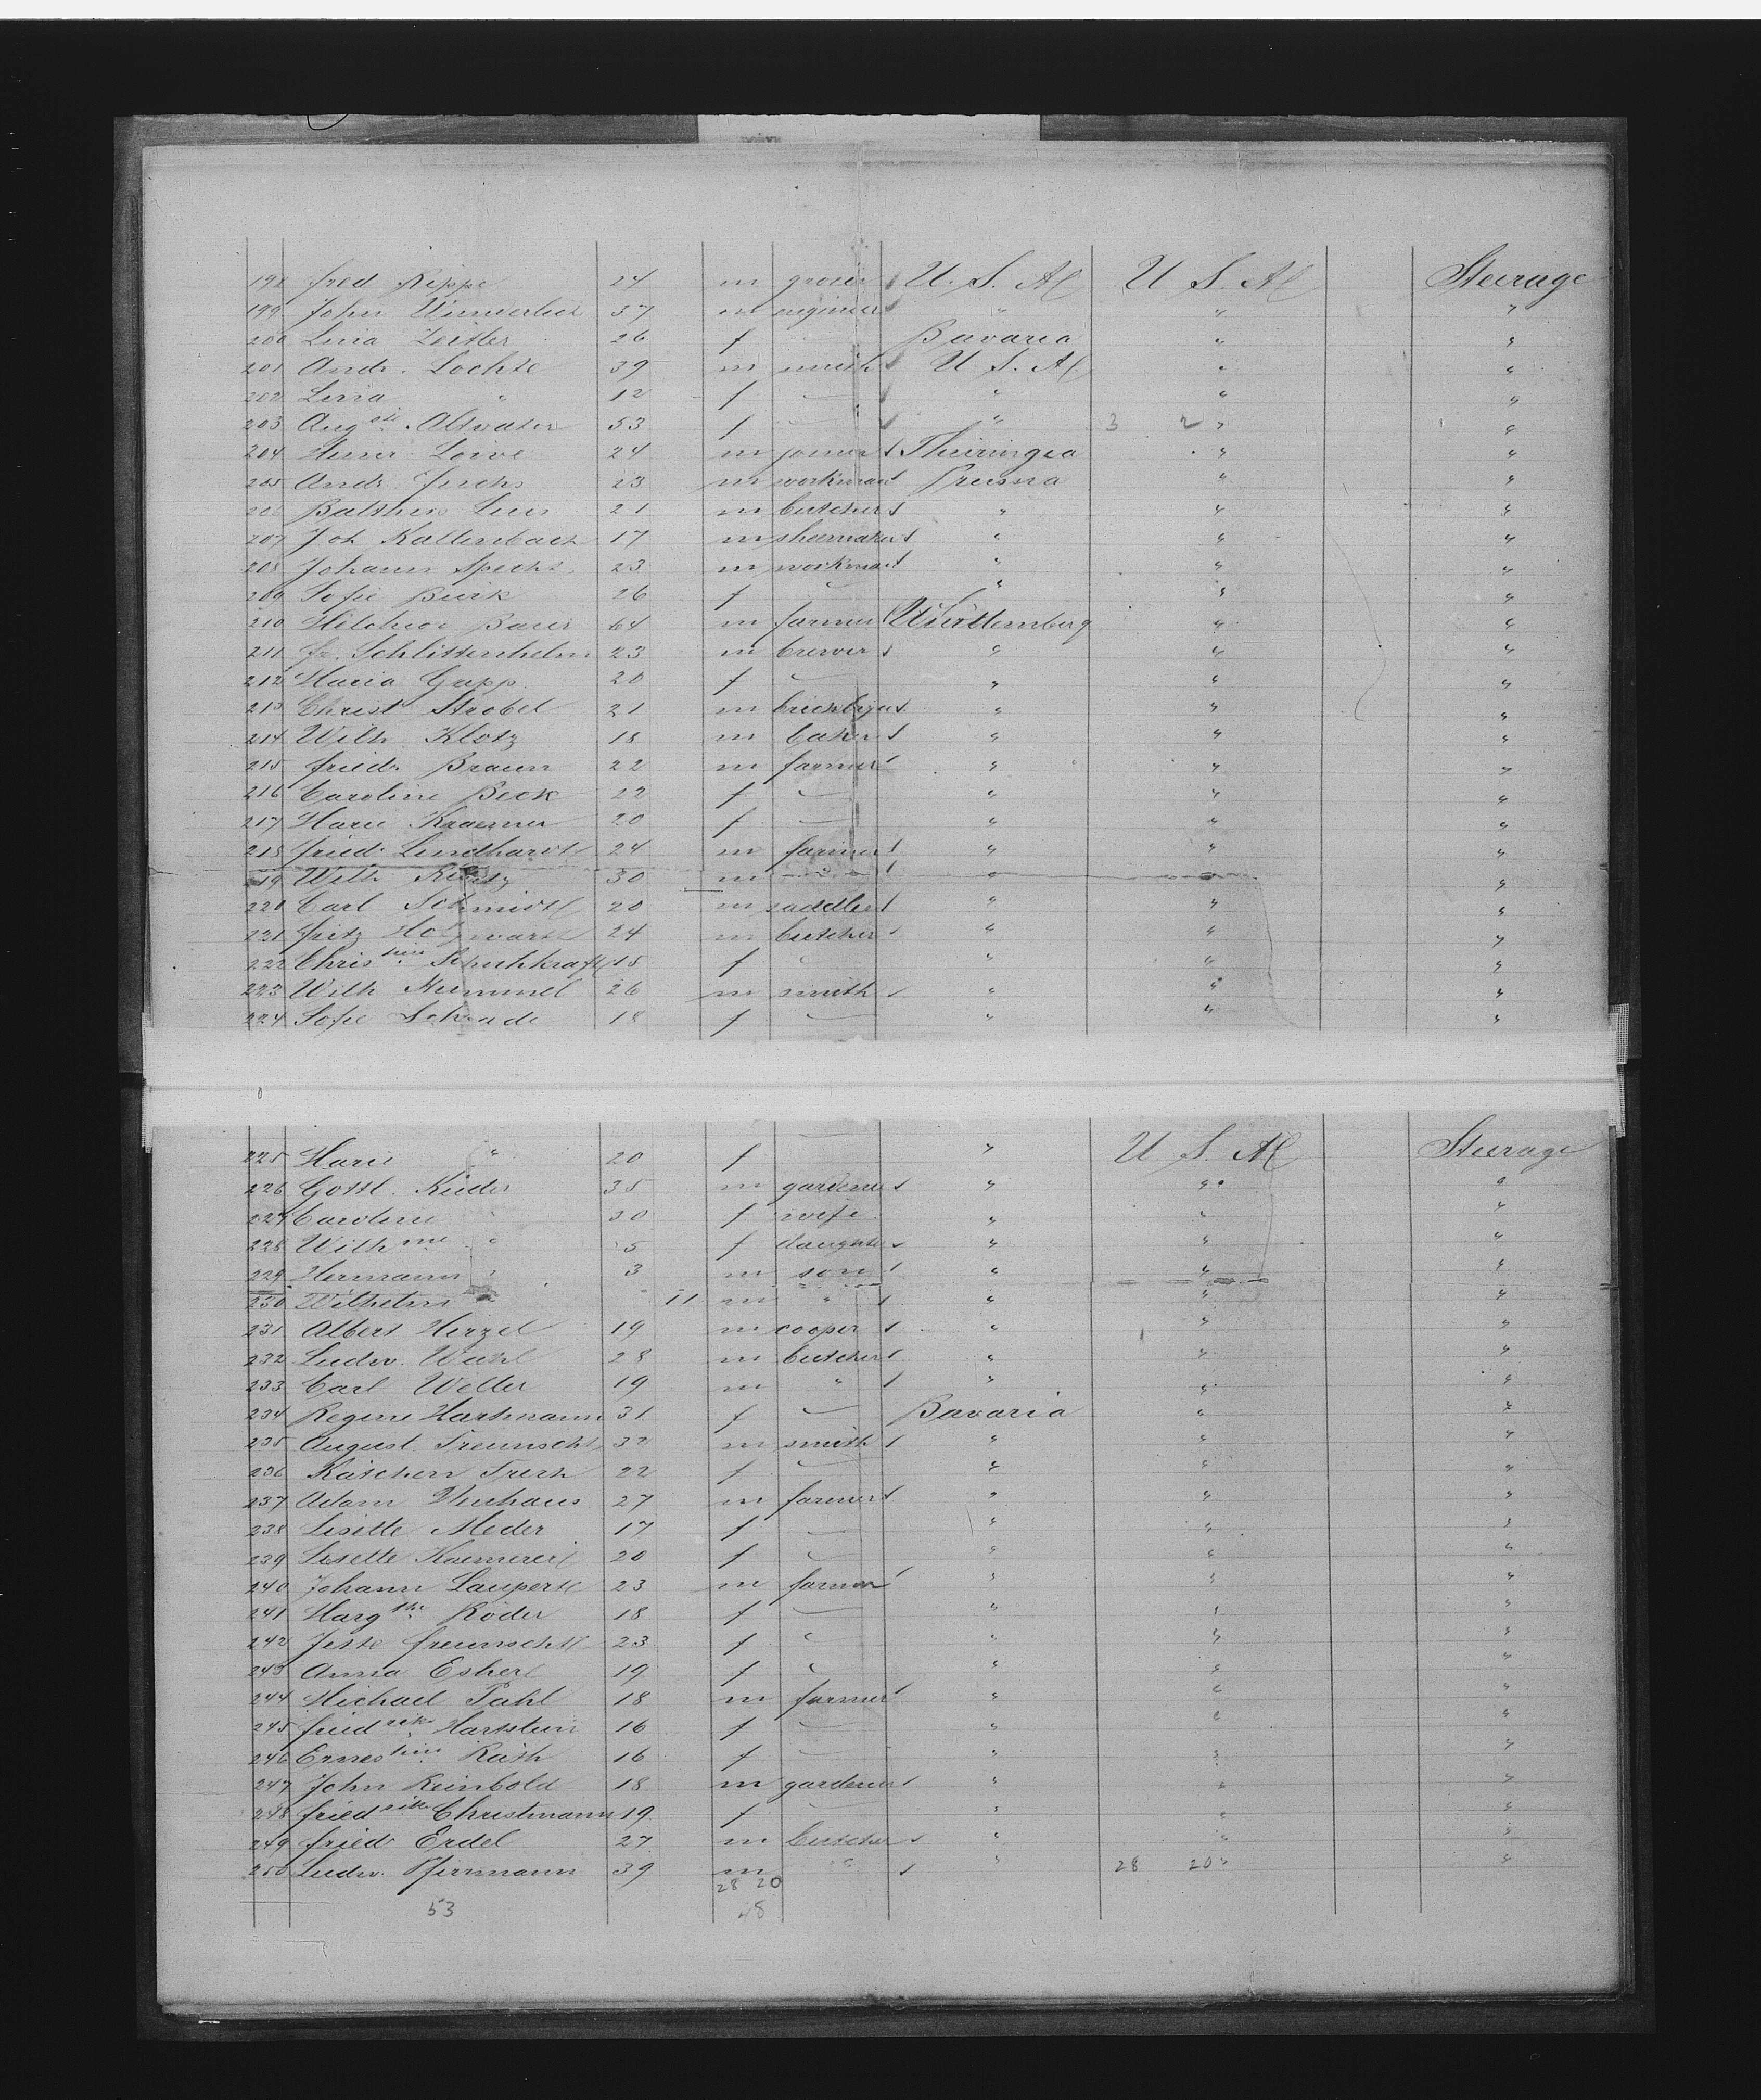 198 Fred Rippe 24 m grocer U. S. A U S. A Steerage
199 John 37 m engineer " " "
200 Lina Zeitler 26 f Bavaria " "
201 Andr. Lochte 39 m smith U S. A " "
202 Lina " 12 f — " " "
203 Aug ste. Altvater 53 f — " 3 2 " "
204 24 m joiner Thuringia " "
205 Andr. Fuchs 23 m workman Prussia " "
206 21 m butcher " " "
207 Joh Kaltenbach 17 m shoemaker " " "
208 Johann Specht 23 m workman " " "
209 Sofie 26 f — " " "
210 Melchior 64 m farmer Württemberg " "
211 Fr. Schlittenhelm 23 m brewer " " "
212 Maria Gapp 20 f — " " "
213 Christ Strobel 21 m " " "
214 Wilh. Klotz 18 m baker " " "
215 Friedr Braun 22 m farmer " " "
216 Caroline Beck 22 f — " " "
217 Marie Kraemer 20 f — " " "
218 Friedr Lindhardt 24 m farmer " " "
219 Wilh 30 m " " " "
220 Carl Schmidt 20 m saddler " " "
221 Fritz Holzwarth 24 m butcher " " "
222 Chris tine Schuhkraft 18 f — " " "
223 Wilh Hummel 26 m smith " " "
224 Sofie Schrade 18 f — " " "
225 Marie " 20 f — " U S. A Steerage
226 Gottl. 35 m gardener " " "
227 Caroline " 30 f wife " " "
228 Wilh me " 5 f daughter " " "
229 Hermann " 3 m son " " "
230 Wilhelm " 11 m " " " "
231 Albert Hirzel 19 m cooper " " "
232 Ludw. Wahl 28 m butcher " " "
233 Carl Weller 19 m " " " "
234 Regine Hartmann 31 f — Bavaria " "
235 August 32 m smith " " "
236 Kätchen 22 f — " " "
237 Adam Neuhaus 27 m farmer " " "
238 Lisette Meder 17 f — " " "
239 Lisette 20 f — " " "
240 Johann 23 m farmer " " "
241 Marg the Röder 18 f — " " "
242 23 f — " " "
243 Anna 19 f — " " "
244 Michael Pahl 18 m farmer " " "
245 Fried rike Hartstein 16 f — " " "
246 Ernes tine Rath 16 f — " " "
247 John Reinbold 18 m gardener " " "
248 Fried rike Christmann 19 f — " " "
249 Fried Erdel 27 m butcher " " "
250 Ludw. Pfirrmann 39 m " " 28 20 " "
28 20
53 48